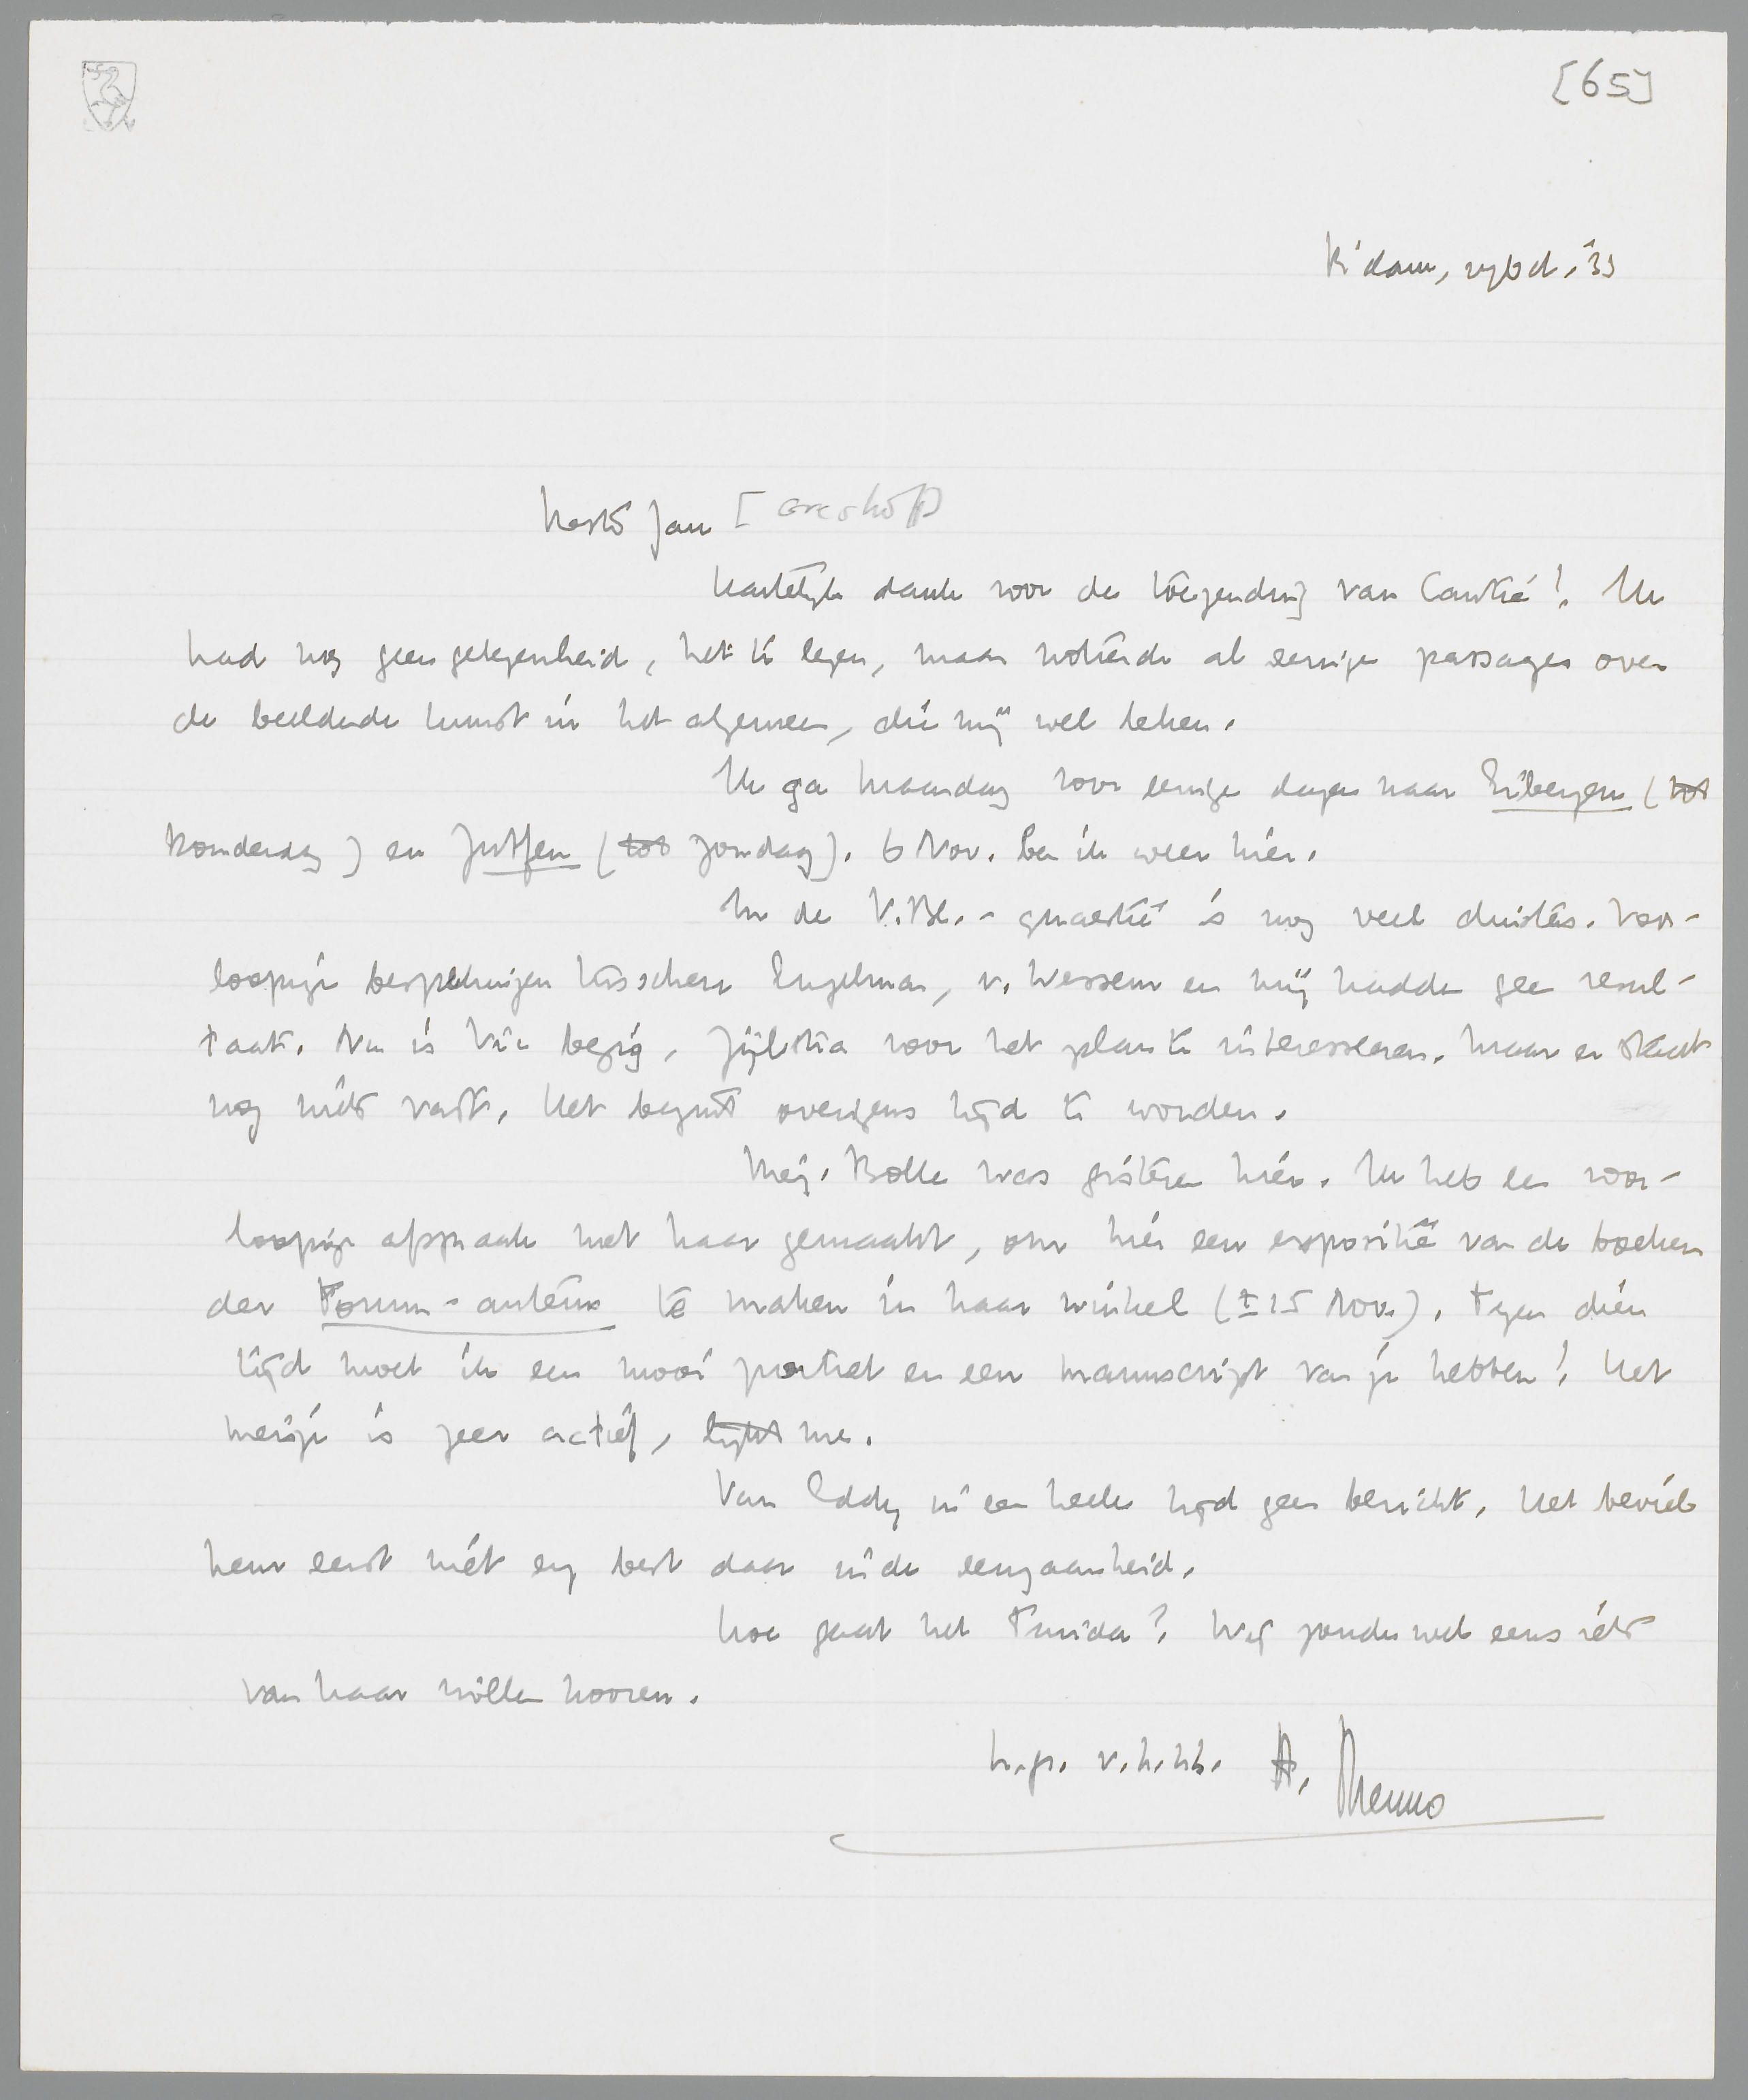 [65]
R'dam, 27 Oct. '33
Beste Jan [Greshoff]
Hartelijk dank voor de toezending van Cantré! Ik
had nog geen gelegenheid, het te lezen, maar noteerde al eenige passages over
de beeldende kunst in het algemeen, die mij wel leken.
Ik ga Maandag voor eenige dagen naar Eibergen (tot
Donderdag) en Zutfen (tot Zondag). 6 Nov. ben ik weer hier.
In de V.Bl.-quaestie is nog veel duister. Voor-
loopige besprekingen tusschen Engelman, v. Wessem en mij hadden geen resul-
taat. Nu is Vic bezig, Zijlstra voor het plan te interesseren. Maar er staat
nog niets vast. Het begint overigens tijd te worden.
Mej. Bolle was gisteren hier. Ik heb een voor-
loopige afspraak met haar gemaakt, om hier een expositie van de boeken
der Forum-auteurs te maken in haar winkel (± 15 Nov.). Tegen dien
tijd moet ik een mooi portret en een manuscript van je hebben! Het
meisje is zeer actief, lijkt me.
Van Eddy in een heele tijd geen bericht. Het beviel
hem eerst niet erg best daar in de eenzaamheid.
Hoe gaat het Tunida? Wij zouden wel eens iets
van haar willen hooren.
h.gr. v.h.h. A. Menno